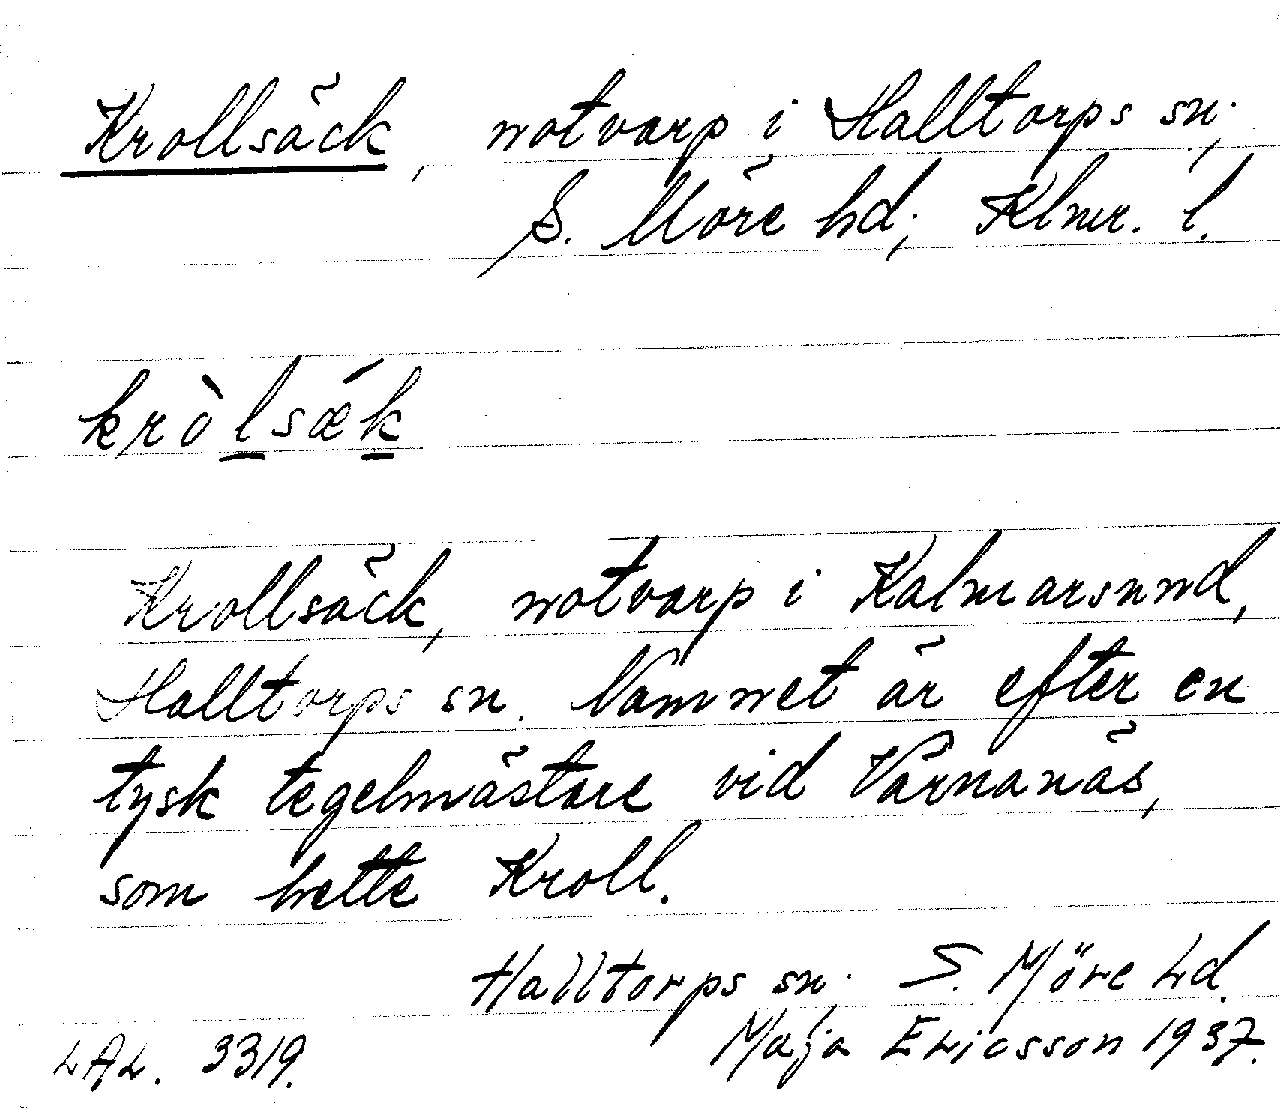 Krollsäck, notvarp i Halltorps sn;
S. Möre hd; Klmr. l.
kròlsǽk
Krollsäck, notvarp i Kalmarsund,
Halltorps sn. Namnet är efter en
tysk tegelmästare vid Värnanäs,
som hette Kroll.
Halltorps sn. S. Möre hd.
LAL. 3319. Maja Ericsson 1937.